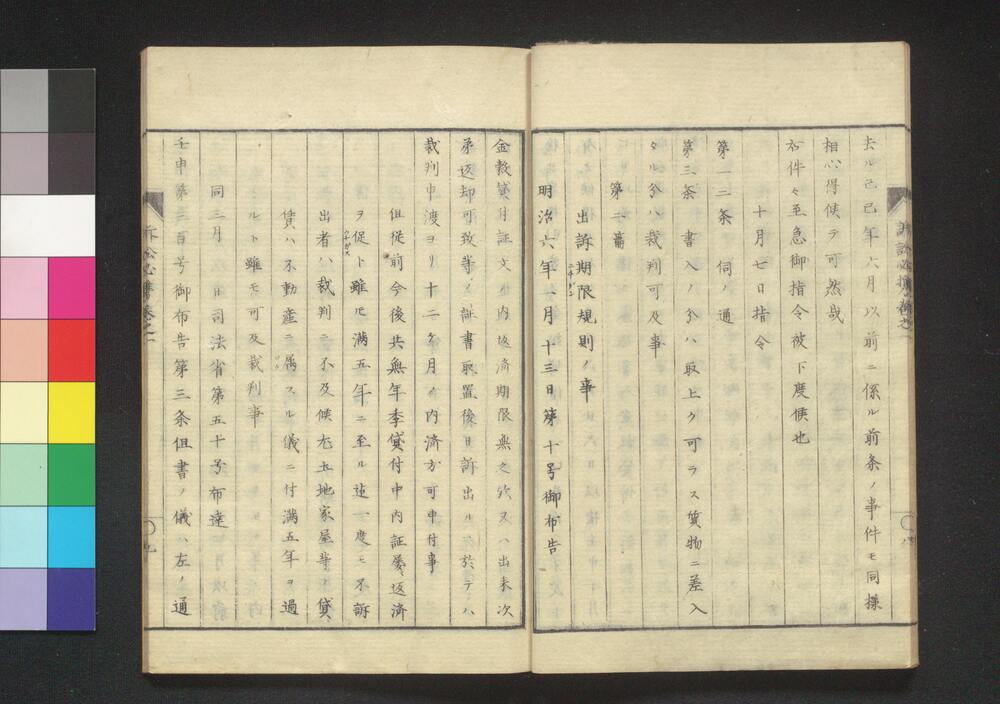 去ル己巳年六月以前ニ係ル前条ノ事件モ同様
相心得候テ可然哉
右件々至急御指令被下度候也
十月七日指令
第一二条 伺ノ通
第三条 書入ノ分ハ取上ク可ラス質物ニ差入
タル分ハ裁判可及事
第二
出訴期限規則ノ事
明治六年一月十三日第十号御布告
金穀貸付証文ノ内返済期限無之歟又ハ出来次
第返却可致等ノ証書取置後日訴出ル於テハ
裁判申渡ヨリ十二ケ月ノ内済方可申付事
但従前今後共無年季貸付中内証返済
ヲ促ト雖モ満五年ニ至ル迄一度モ不訴
出者ハ裁判ニ不及候尤土地家屋等ノ貸
賃ハ不動産ニ属スル儀ニ付満五年ヲ過
ルト雖モ可及裁判事
同三月 日司法省第五十号布達
壬申第三百号御布告第三条但書ノ儀ハ左ノ通
訴訟必携巻之二
九